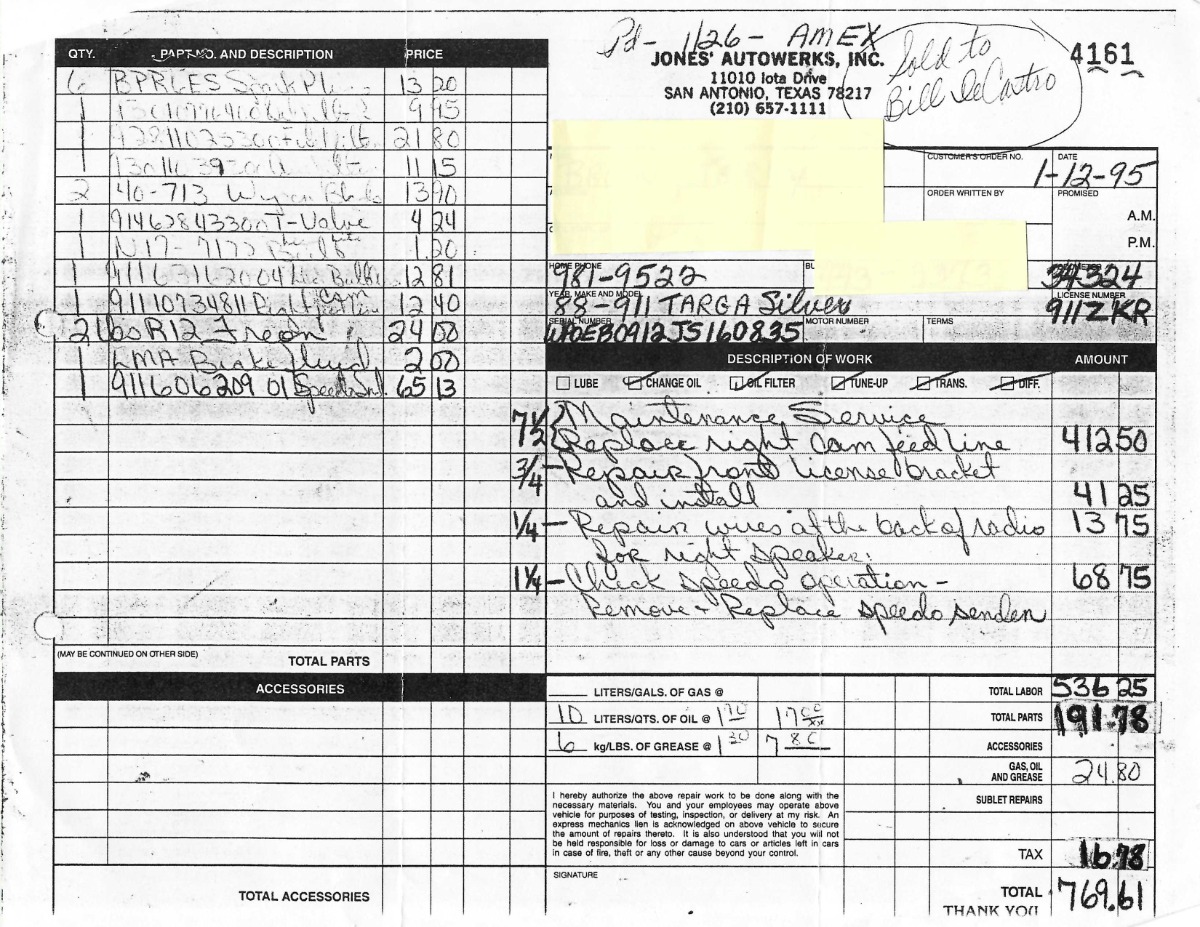 Pd - 1/26 - AMEX
JONES' AUTOWERKS, INC.
11010 Iota Drive
SAN ANTONIO, TEXAS 78217
(210) 657-1111
Sold to
Bill DeCastro
4161
QTY. PART NO. AND DESCRIPTION PRICE
6 13 20
1 9 95
1 21 80
1 11 15
2 40-713 13 90
1 91462843300 T-Valve 4 24
1 1.20
1 12 81
1 12 40
2 lbs R12 Freon 24 00
1 LMA Brake Fluid 2 00
1 911 606 209 01 65 13
(MAY BE CONTINUED ON OTHER SIDE)
TOTAL PARTS
ACCESSORIES
TOTAL ACCESSORIES
CUSTOMER'S ORDER NO.
DATE
1-12-95
ORDER WRITTEN BY
PROMISED
A.M.
P.M.
HOME PHONE
981-9522
34324
YEAR, MAKE AND MODEL
88 - 911 TARGA Silver
LICENSE NUMBER
911ZKR
SERIAL NUMBER
WPOEB0912JS160835
MOTOR NUMBER
TERMS
DESCRIPTION OF WORK AMOUNT
LUBE CHANGE OIL OIL FILTER TUNE-UP TRANS. DIFF.
7 1/2 Maintenance Service
Replace right cam feed line 412 50
3/4 - Repair front license bracket
and install 41 25
1/4 - Repair wires at the back of radio 13 75
for right speaker.
1 1/4 - Check speedo operation - 68 75
Remove + Replace speedo sender
LITERS/GALS. OF GAS @
TOTAL LABOR 536 25
10 LITERS/QTS. OF OIL @ 1 70 17 00
TOTAL PARTS 191.78
6 kg/LBS. OF GREASE @ 1 30 7 80
ACCESSORIES
GAS, OIL
AND GREASE 24.80
I hereby authorize the above repair work to be done along with the
necessary materials. You and your employees may operate above
vehicle for purposes of testing, inspection, or delivery at my risk. An
express mechanics lien is acknowledged on above vehicle to secure
the amount of repairs thereto. It is also understood that you will not
be held responsible for loss or damage to cars or articles left in cars
in case of fire, theft or any other cause beyond your control.
SIGNATURE
SUBLET REPAIRS
TAX 16.78
TOTAL 769.61
THANK YOU